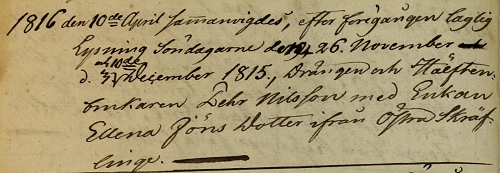 1816 den 10de April sammanvigdes, efter föregången laglig
Lysning Söndagarne den 26. November
d. 3 och 10de December 1815., Drängen och Hälften-
brukaren Pehr Nilsson med Enkan
Ellena Jöns Dotter ifrån Östra Skräf-
linge.